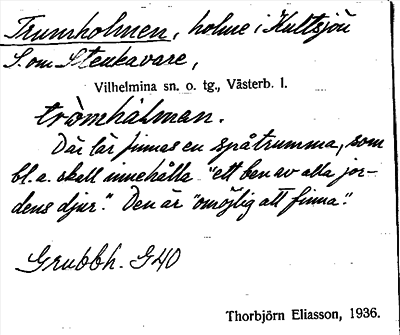 Trumholmen, holme i Kultsjön
S. om Stenkavare,
Vilhelmina sn. o. tg., Västerb. l.
tròmhålman.
Där lär finnas en spåtrumma, som
bl. a. skall innehålla "ett ben av alla jor-
dens djur". Den är "omöjlig att finna".
Grubbh. G40
Thorbjörn Eliasson, 1936.